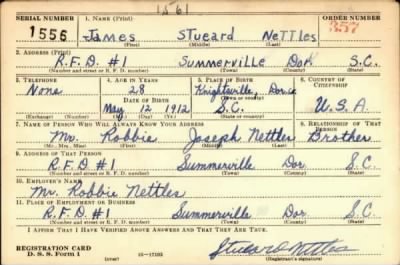 1561
SERIAL NUMBER 1. NAME (Print) ORDER NUMBER
1556 James Stueard Nettles 357
(First) (Middle) (Last)
2. ADDRESS (Print)
R.F.D. #1 Summerville Dor. S.C.
(Number and street or R. F. D. number) (Town) (County) (State)
3. TELEPHONE 4. AGE IN YEARS 5. PLACE OF BIRTH 6. COUNTRY OF CITIZENSHIP
None 28 Knightsville, Dor. co
DATE OF BIRTH (Town or county)
May 12 1912 S.C. U.S.A.
(Exchange) (Number) (Mo.) (Day) (Yr.) (State or country)
7. NAME OF PERSON WHO WILL ALWAYS KNOW YOUR ADDRESS 8. RELATIONSHIP OF THAT PERSON
Mr. Robbie Joseph Nettles Brother
(Mr., Mrs., Miss) (First) (Middle) (Last)
9. ADDRESS OF THAT PERSON
R.F.D. #1 Summerville Dor. S.C.
(Number and street or R. F. D. number) (Town) (County) (State)
10. EMPLOYER'S NAME
Mr. Robbie Nettles
11. PLACE OF EMPLOYMENT OR BUSINESS
R.F.D. #1 Summerville Dor. S.C.
(Number and street or R. F. D. number) (Town) (County) (State)
I AFFIRM THAT I HAVE VERIFIED ABOVE ANSWERS AND THAT THEY ARE TRUE.
REGISTRATION CARD
D. S. S. Form 1 (over) 16—17105 Stueard Nettles
(Registrant's signature)